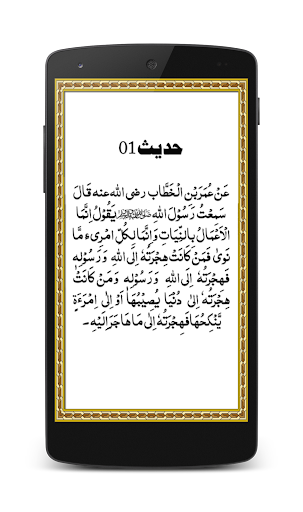 حدیث 01
عَنْ عُمَرَبْنِ الْخَطَّابِ رضی اللہ عنہ قَالَ
سَمِعْتُ رَسُوْلَ اللهِ ﷺ یَقُوْلُ اِنَّمَا
الْاَعْمَالُ بِالنِّیَاتِ وَاِنَّمَالِکُلِّ امْرِیءٍ مَّا
نَوٰی فَمَنْ کَانَتْ هِجْرَتُهٗ اِلَی اللهِ وَرَسُوْلِهٖ
فَهِجْرَتُهٗ اِلَی اللهِ وَرَسُوْلِهٖ وَمَنْ کَانَتْ
هِجْرَتُهٗ اِلٰی دُنْیَا یُصِیْبُهَا اَوْ اِلٰی امْرَءَةٍ
یَّنْکِحُهَا فَهِجْرَتُهٗ اِلٰی مَا هَاجَرَ اِلَیْهِ۔